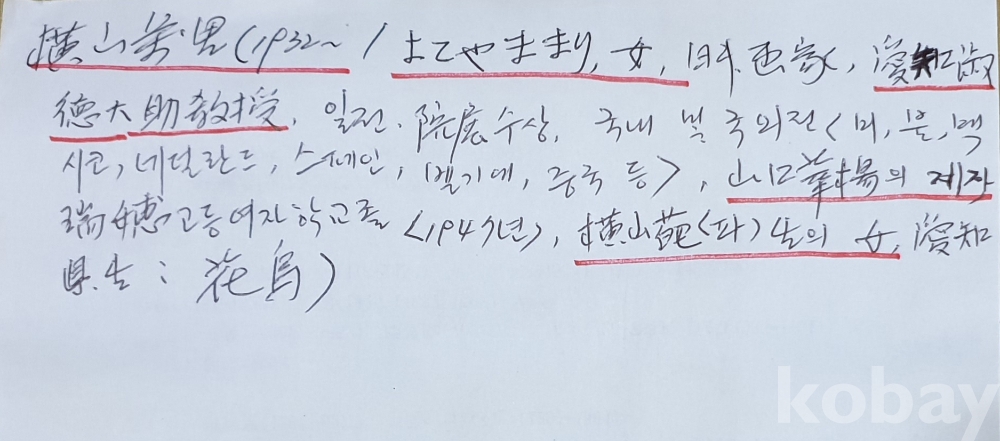 横山万里(1932~ / よこやままり, 女, 日本画家, 愛知淑
徳大助教授, 일전, 院展수상, 국내 및 국외전<미, 불, 멕
시코, 네덜란드, 스페인, 벨기에, 중국 등>, 山口華楊의 제자
瑞穂고등여자학교졸 <1947년>, 横山葩<파>生의 女, 愛知
県生 : 花鳥)
kobay